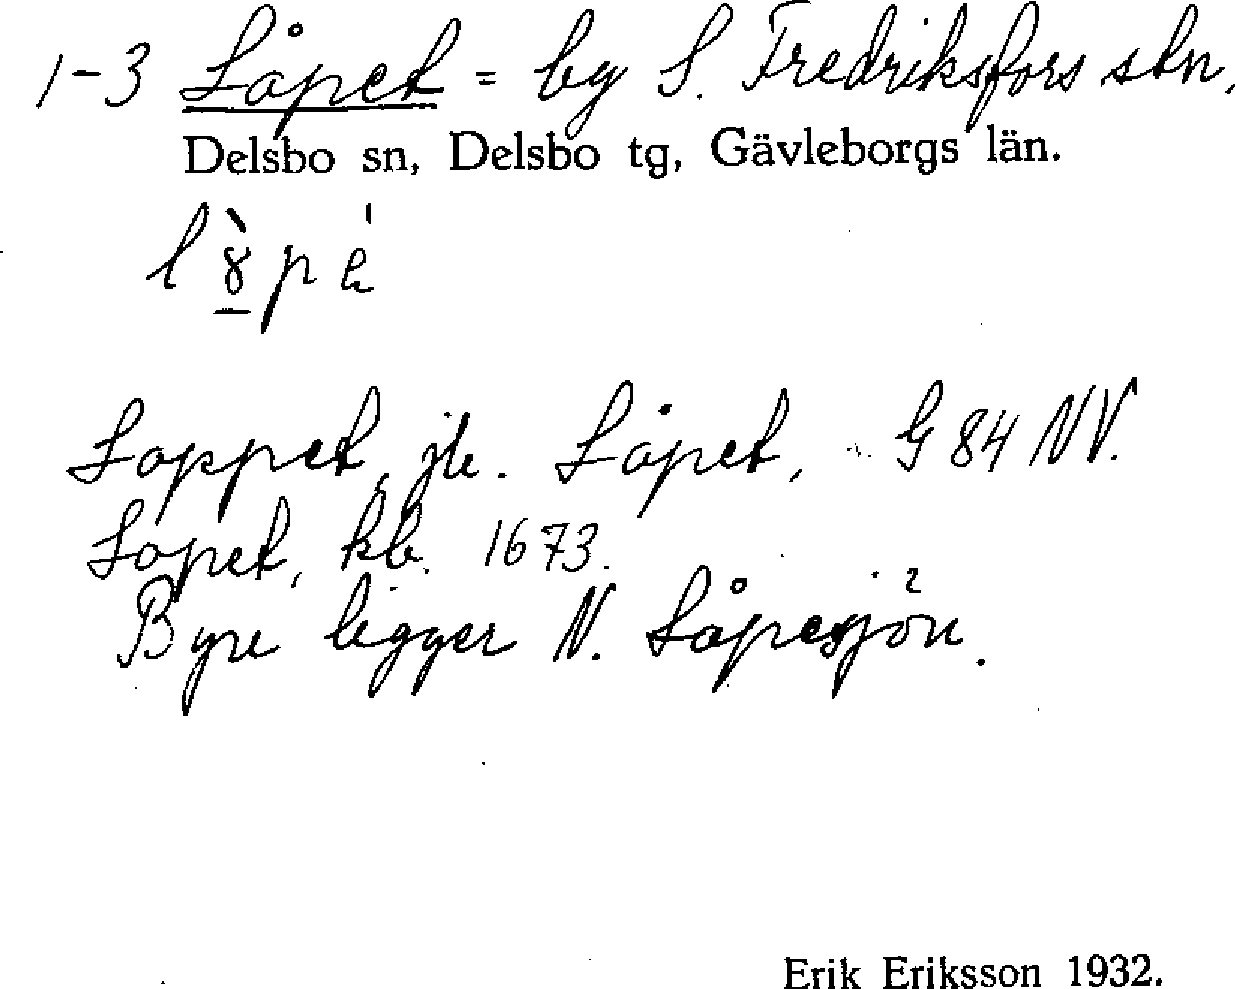 1-3 Låpet = by S. Fredriksfors stn.
Delsbo sn, Delsbo tg, Gävleborgs län.
Loppet, jb. Låpet, G 84 NV.
Lopet, kb. 1673.
Byn ligger N. Låpesjön.
Erik Eriksson 1932.